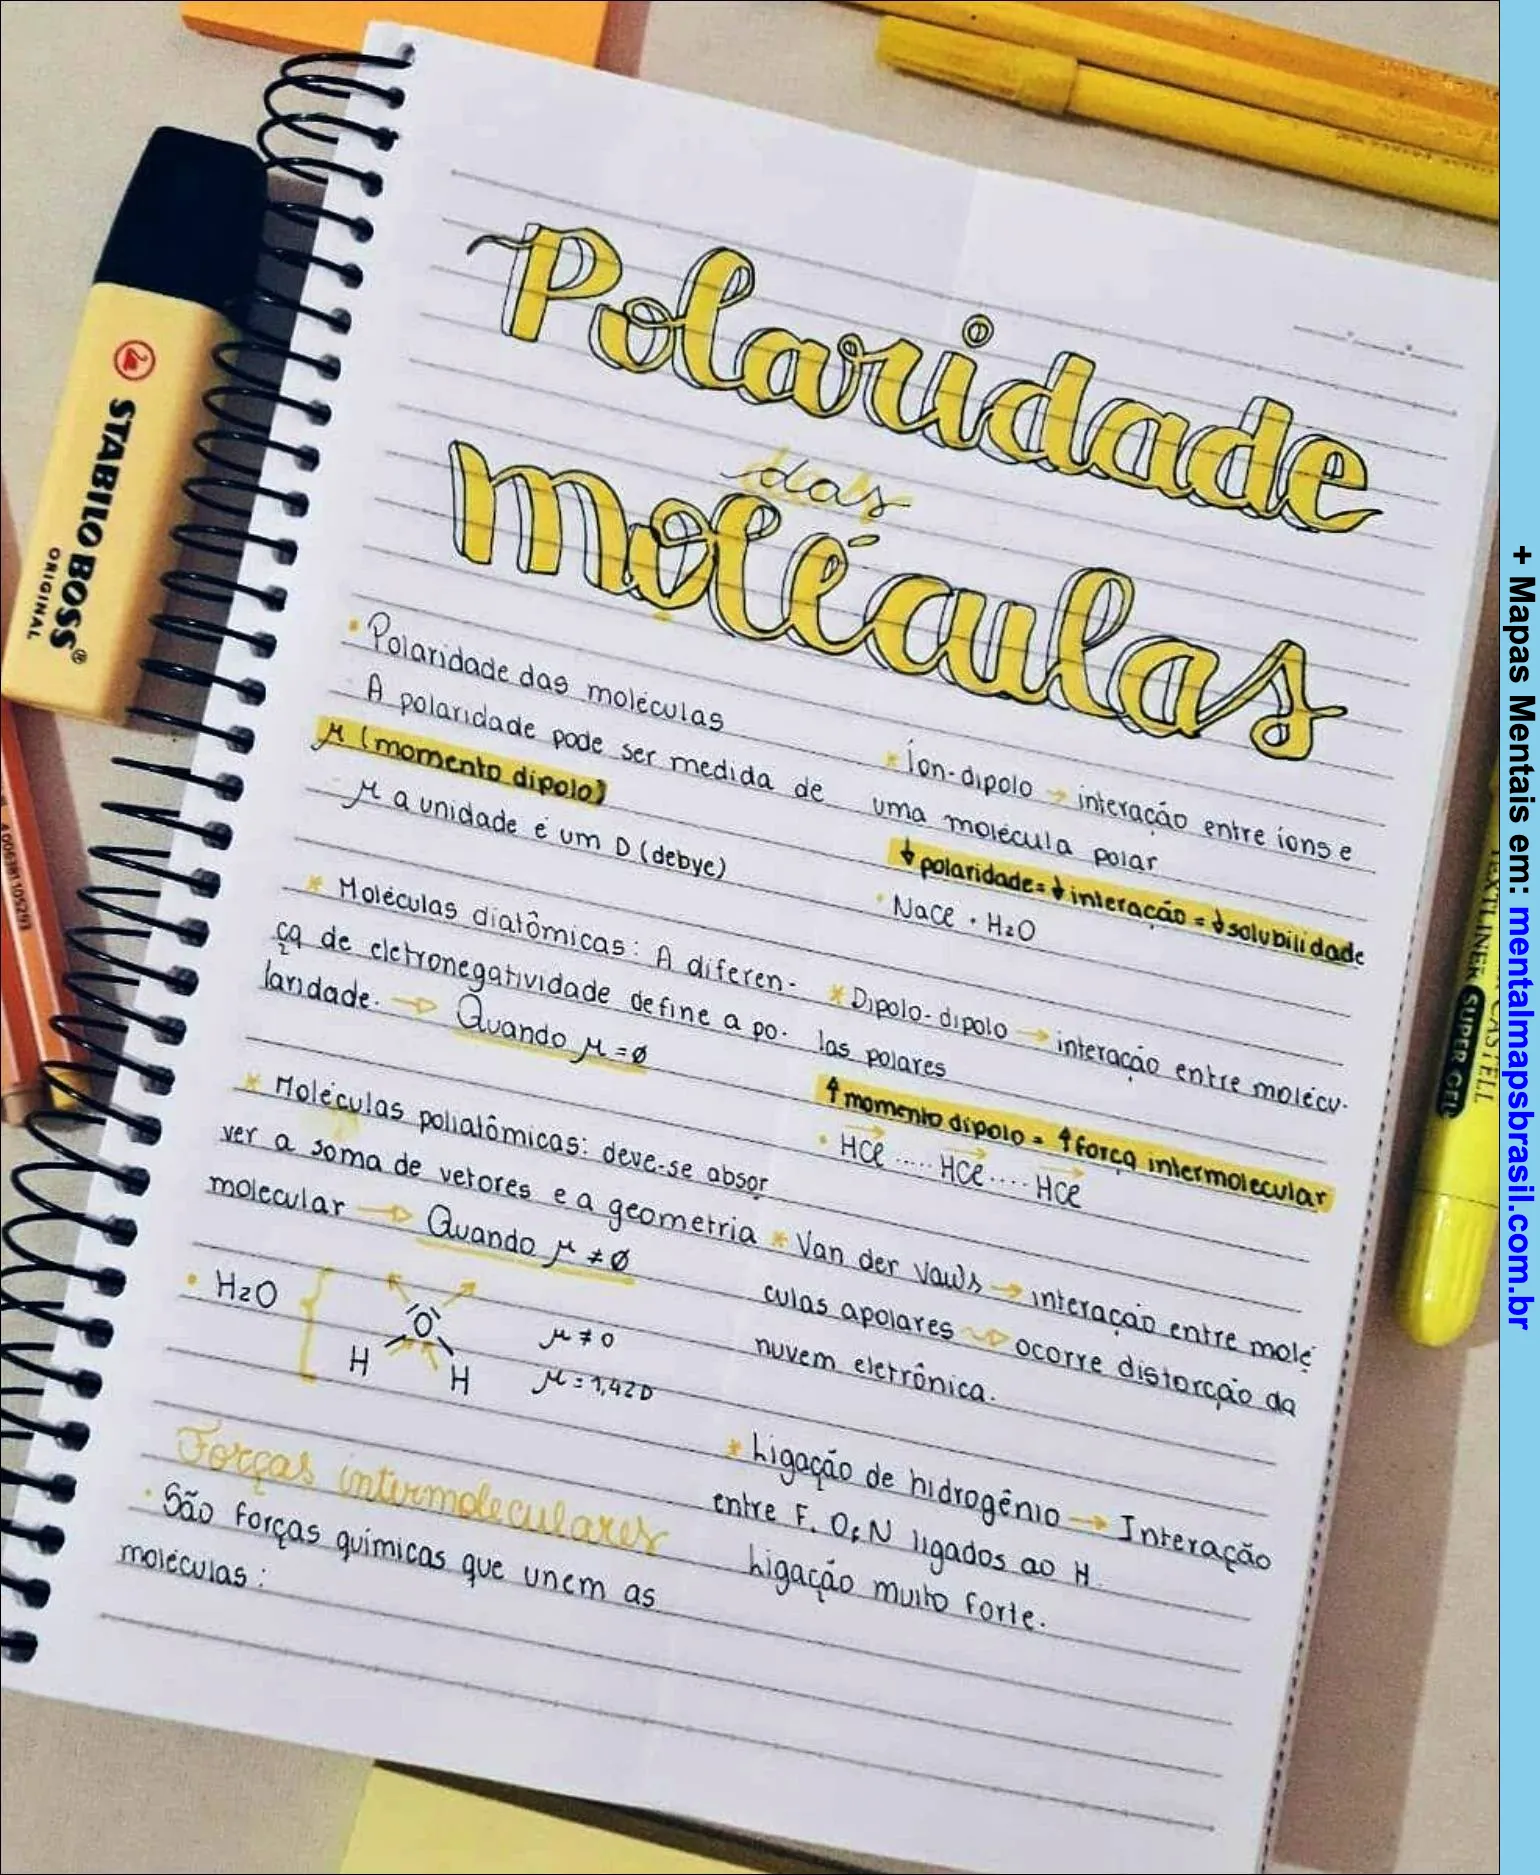 Polaridade
das
moléculas
• Polaridade das moléculas
A polaridade pode ser medida de
μ (momento dipolo)
μ a unidade é um D (debye)
* Moléculas diatômicas: A diferen-
ça de eletronegatividade define a po-
laridade. → Quando μ = ∅
* Moléculas poliatômicas: deve-se absor
ver a soma de vetores e a geometria
molecular → Quando μ ≠ ∅
• H2O
O
H H
μ ≠ 0
μ = 1,42D
Forças intermoleculares
• São forças químicas que unem as
moléculas:
* Íon-dipolo → interação entre íons e
uma molécula polar
↓ polaridade = ↓ interação = ↓ solubilidade
• NaCl · H2O
* Dipolo-dipolo → interação entre molécu-
las polares
↑ momento dipolo = ↑ força intermolecular
• HCl ..... HCl .... HCl
* Van der Vawls → interação entre molé
culas apolares → ocorre distorção da
nuvem eletrônica.
* Ligação de hidrogênio → Interação
entre F, O, N ligados ao H.
Ligação muito forte.
STABILO BOSS®
ORIGINAL
4 006381 105293
TEXTLINER
CASTELL
SUPER GEL
+ Mapas Mentais em: mentalmapsbrasil.com.br